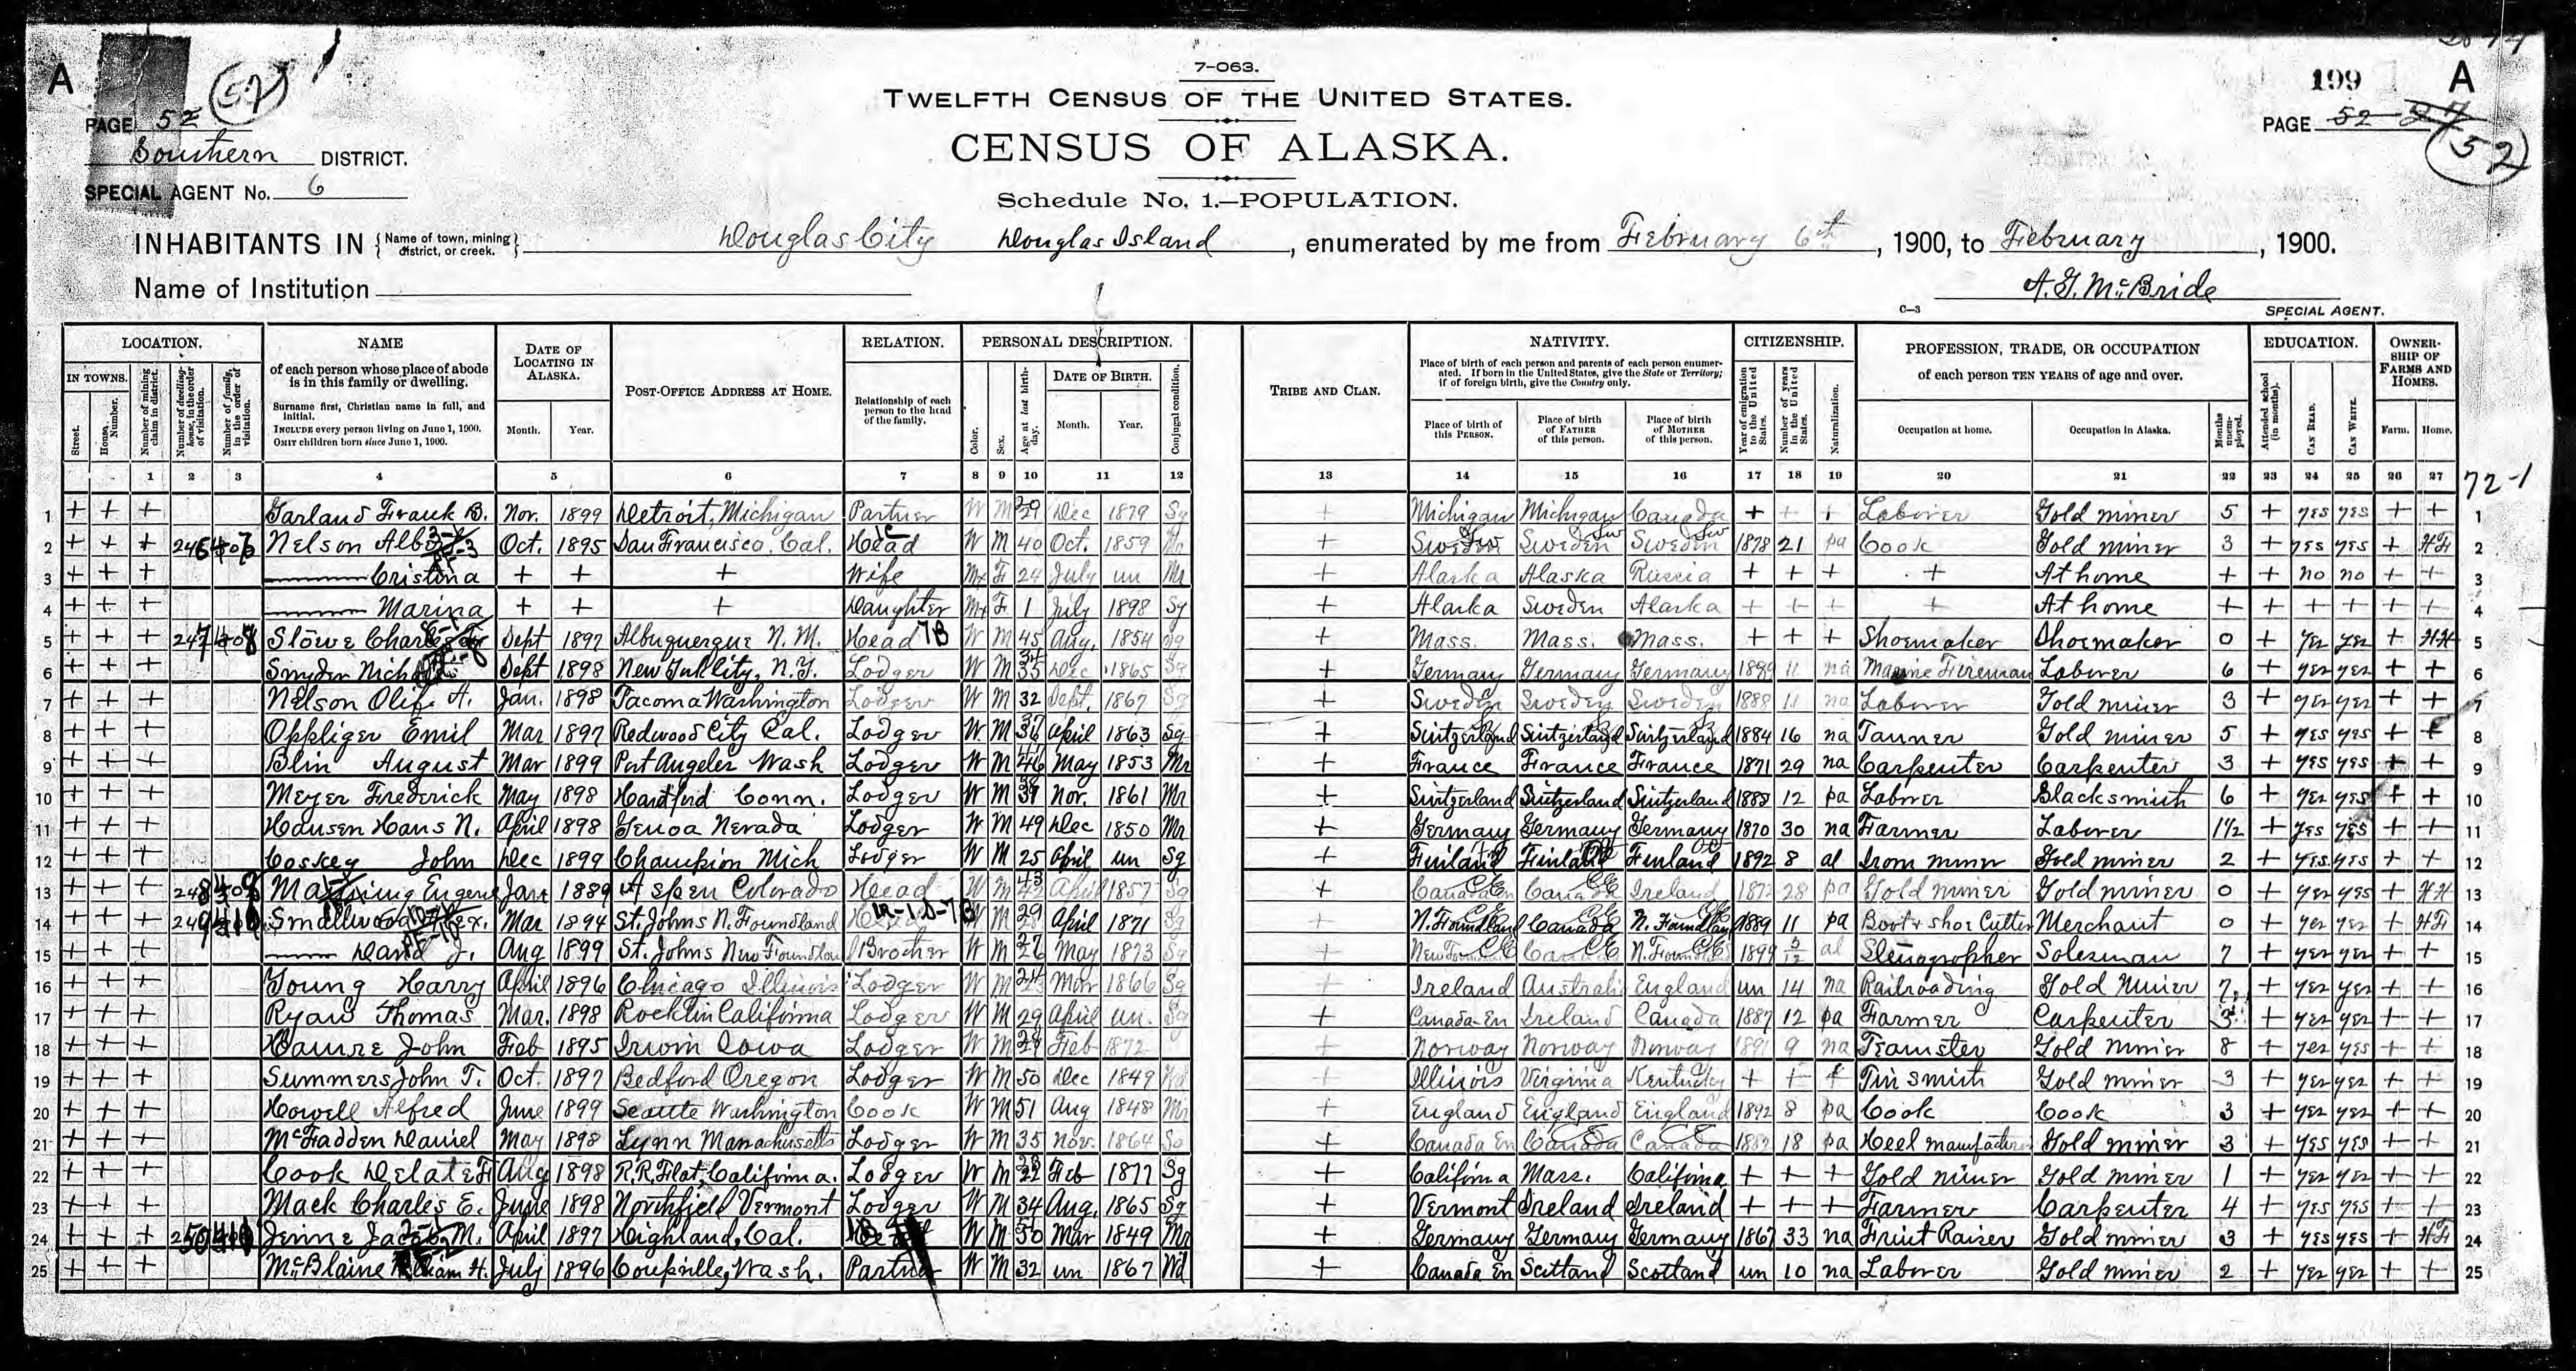 7-063.
A
52
PAGE 52
Southern DISTRICT.
SPECIAL AGENT No. 6
TWELFTH CENSUS OF THE UNITED STATES.
CENSUS OF ALASKA.
Schedule No. 1.—POPULATION.
199 A
PAGE 52
52
INHABITANTS IN {Name of town, mining district, or creek.} Douglas City Douglas Island, enumerated by me from February 6th, 1900, to February, 1900.
Name of Institution
A. G. McBride
C—3 SPECIAL AGENT.
LOCATION. NAME DATE OF LOCATING IN ALASKA. POST-OFFICE ADDRESS AT HOME. RELATION. PERSONAL DESCRIPTION. TRIBE AND CLAN. NATIVITY. CITIZENSHIP. PROFESSION, TRADE, OR OCCUPATION of each person TEN YEARS of age and over. EDUCATION. OWNERSHIP OF FARMS AND HOMES.
IN TOWNS. Street. House Number. Number of mining claim in district. Number of dwelling-house, in the order of visitation. Number of family, in the order of visitation.
of each person whose place of abode is in this family or dwelling.
Surname first, Christian name in full, and initial.
INCLUDE every person living on June 1, 1900.
OMIT children born since June 1, 1900.
Month. Year.
Relationship of each person to the head of the family.
Color. Sex. Age at last birthday. DATE OF BIRTH. Month. Year. Conjugal condition.
Place of birth of each person and parents of each person enumerated. If born in the United States, give the State or Territory; if of foreign birth, give the Country only.
Place of birth of this PERSON. Place of birth of FATHER of this person. Place of birth of MOTHER of this person.
Year of emigration to the United States. Number of years in the United States. Naturalization.
Occupation at home. Occupation in Alaska. Months unemployed.
Attended school (in months). CAN READ. CAN WRITE. Farm. Home.
1 2 3 4 5 6 7 8 9 10 11 12 13 14 15 16 17 18 19 20 21 22 23 24 25 26 27
72-1
1 + + + Garland Frank B. Nov. 1899 Detroit, Michigan Partner W M Dec 1879 Sg + Michigan Michigan Canada + + + Laborer Gold miner 5 + yes yes + + 1
2 + + + 246 Nelson Oct. 1895 San Francisco, Cal. Head W M 40 Oct. 1859 + Sweden Sweden Sweden 1878 21 pa Cook Gold miner 3 + yes yes + HF 2
3 + + + —— Cristina + + + Wife Mx F 24 July un Mr + Alaska Alaska Russia + + + + At home + + no no + + 3
4 + + + —— Marina + + + Daughter Mx F 1 July 1898 Sg + Alaska Sweden Alaska + + + + At home + + + + + + 4
5 + + + 247 Stowe Sept 1897 Albuquerque N. M. Head 7B W M 45 Aug. 1854 Sg + Mass. Mass. Mass. + + + Shoemaker Shoemaker 0 + yes yes + HH 5
6 + + + Snyder Sept 1898 New York City, N.Y. Lodger W M Dec 1865 Sg + Germany Germany Germany 1889 11 na Marine Fireman Laborer 6 + yes yes + + 6
7 + + + Nelson Olif A. Jan. 1898 Tacoma Washington Lodger W M 32 Sept. 1867 Sg + Sweden Sweden Sweden 1888 11 na Laborer Gold miner 3 + yes yes + + 7
8 + + + Oppliger Emil Mar 1897 Redwood City Cal. Lodger W M April 1863 Sg + Switzerland Switzerland Switzerland 1884 16 na Tanner Gold miner 5 + yes yes + + 8
9 + + + Blin August Mar 1899 Port Angeles Wash Lodger W M 46 May 1853 Mr + France France France 1871 29 na Carpenter Carpenter 3 + yes yes + + 9
10 + + + Meyer Frederick May 1898 Hartford Conn. Lodger W M Nov. 1861 Mr + Switzerland Switzerland Switzerland 1888 12 pa Laborer Blacksmith 6 + yes yes + + 10
11 + + + Hansen Hans N. April 1898 Genoa Nevada Lodger W M 49 Dec 1850 Mr + Germany Germany Germany 1870 30 na Farmer Laborer 1½ + yes yes + + 11
12 + + + Coskey John Dec 1899 Champion Mich Lodger W M 25 April un Sg + Finland Finland Finland 1892 8 al Iron miner Gold miner 2 + yes yes + + 12
13 + + + 248 Eugene Jan 1889 Aspen Colorado Head W M April 1857 Sg + Canada En Canada Ireland 1872 28 pa Gold miner Gold miner 0 + yes yes + HH 13
14 + + + 249 Smallwood Mar 1894 St. Johns N. Foundland W M 29 April 1871 Sg + N. Foundland Canada N. Foundland 1889 11 pa Boot & shoe Cutter Merchant 0 + yes yes + HF 14
15 + + + —— David J. Aug 1899 St. Johns New Foundland Brother W M May 1873 Sg + 1899 5/12 al Stenographer Salesman 7 + yes yes + + 15
16 + + + Young Harry April 1896 Chicago Illinois Lodger W M Mar 1866 Sg + Ireland Australi England un 14 na Railroading Gold Miner 7 + yes yes + + 16
17 + + + Ryan Thomas Mar. 1898 Rocklin California Lodger W M 29 April un. Sg + Canada-En Ireland Canada 1887 12 pa Farmer Carpenter 3 + yes yes + + 17
18 + + + John Feb 1895 Irwin Iowa Lodger W M Feb 1872 + Norway Norway Norway 1891 9 na Teamster Gold miner 8 + yes yes + + 18
19 + + + Summers John T. Oct. 1897 Bedford Oregon Lodger W M 50 Dec 1849 Wd + Illinois Virginia Kentucky + + + Tin smith Gold miner 3 + yes yes + + 19
20 + + + Howell Alfred June 1899 Seattle Washington Cook W M 51 Aug 1848 Mr + England England England 1892 8 pa Cook Cook 3 + yes yes + + 20
21 + + + McFadden Daniel May 1898 Lynn Massachusetts Lodger W M 35 Nov. 1864 + Canada En Canada Canada 1882 18 pa Heel manufacturer Gold miner 3 + yes yes + + 21
22 + + + Cook Aug 1898 R.R. Flat, California. Lodger W M 22 Feb 1877 Sg + California Mass. California + + + Gold miner Gold miner 1 + yes yes + + 22
23 + + + Mack Charles E. June 1898 Northfield Vermont Lodger W M 34 Aug. 1865 Sg + Vermont Ireland Ireland + + + Farmer Carpenter 4 + yes yes + + 23
24 + + + 250 Jenne Jacob M. April 1897 Highland, Cal. W M 50 Mar 1849 Mr + Germany Germany Germany 1867 33 na Fruit Raiser Gold miner 3 + yes yes + HF 24
25 + + + McBlaine William H. July 1896 Coupville, Wash. Partner W M 32 un 1867 Wd + Canada En Scotland Scotland un 10 na Laborer Gold miner 2 + yes yes + + 25